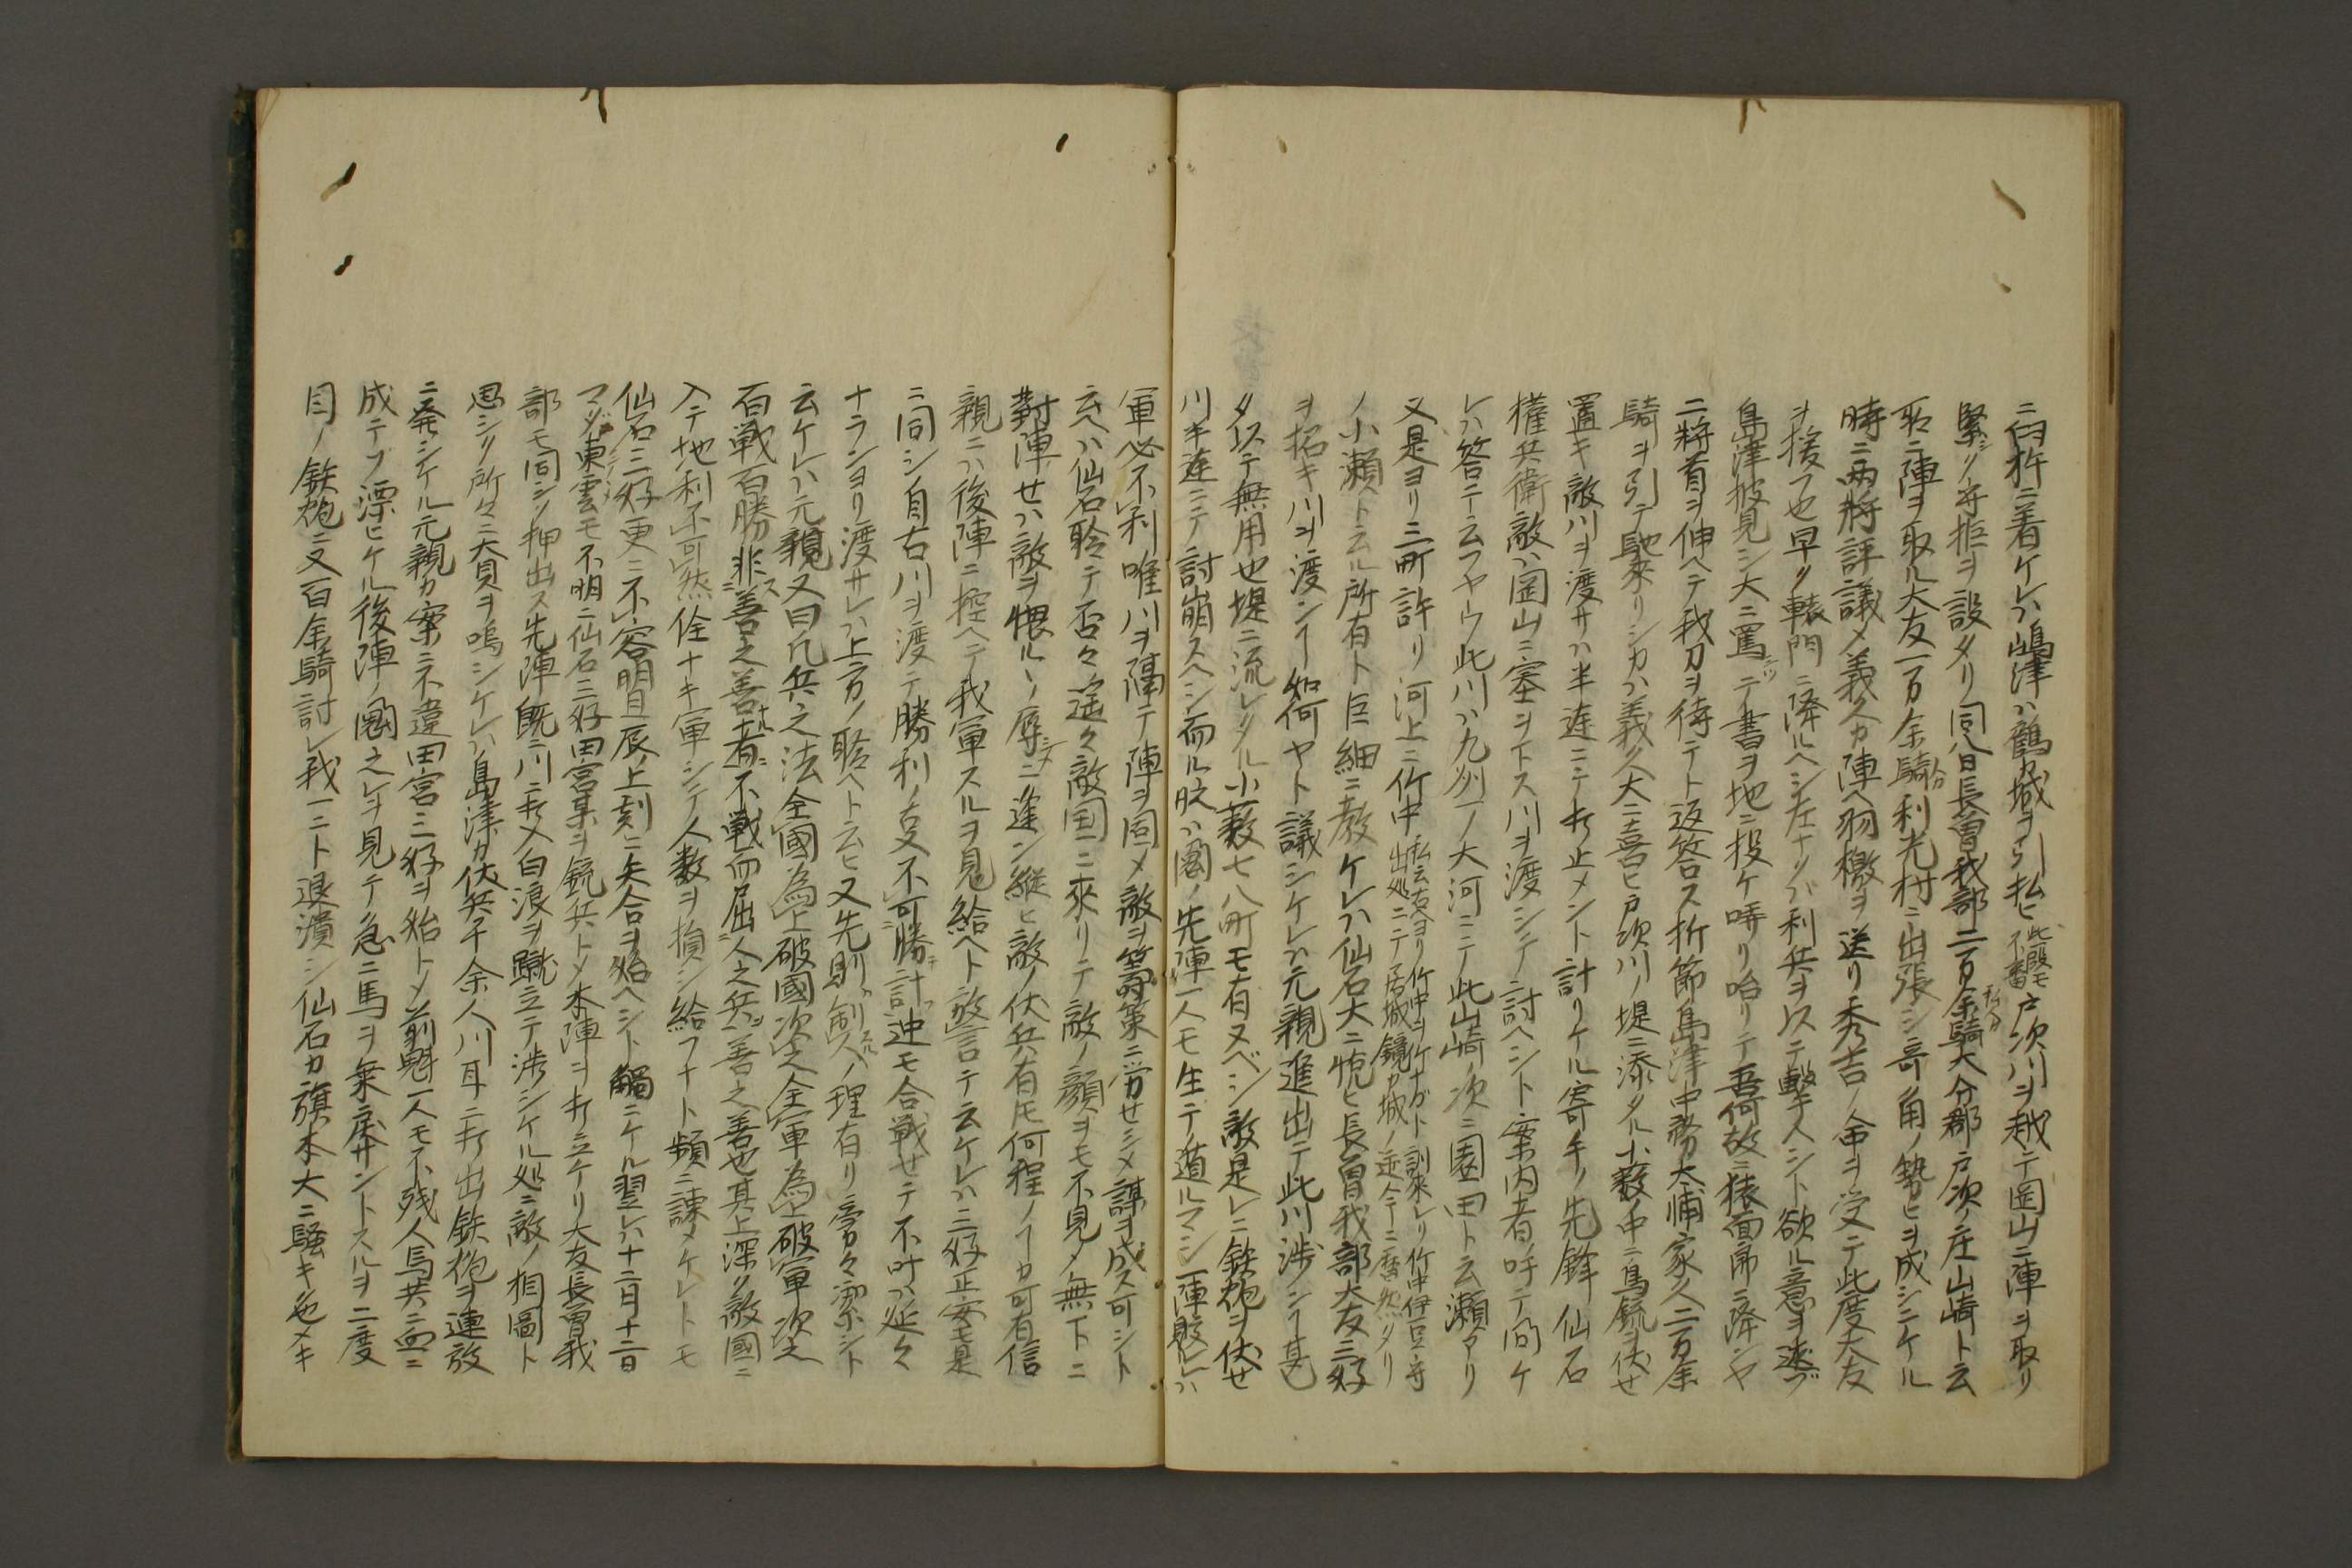 ニ臼杵ニ着ケレハ嶋津ハ鶴カ城ヲ引払ヒ此段モ不審戸次川ヲ越テ岡山ニ陣ヲ取リ
緊シク守拒ヲ設タリ同八日長曽我部二万余騎大分郡戸次ノ庄山崎ト云
所ニ陣ヲ取ル大友一万余騎利光村ニ出張シ奇角ノ勢ヒヲ成シニケル
時ニ両将評議メ義久カ陣ヘ羽檄ヲ送リ秀吉ノ命ヲ受テ此度大友
ヲ援フ也早ク轅門ニ降ルヘシ左ナクハ利兵ヲ以テ撃ヘシト欲ル意ヲ述ブ
島津披見シ大ニ罵テ書ヲ地ニ投ケ哮リ咍リテ吾何故ニ猿面郎ニ降ンヤ
二将首ヲ伸ヘテ我刀ヲ待テト返答ス折節島津中務大輔家久二万余
騎ヲ引テ馳来リシカハ義久大ニ喜ヒ戸次川ノ堤ニ添タル小薮ノ中ニ鳥銃ヲ伏セ
置キ敵川ヲ渡サハ半途ニテ打止メント計リケル寄手ノ先鋒仙石
権兵衛敵ハ岡山ニ塞ヲトス川ヲ渡シテ討ヘシト案内者呼テ問ケ
レハ答テ云フヤウ此川ハ九州一ノ大河ニテ此山崎ノ次ニ園田ト云瀬アリ
又是ヨリ三町許リ河上ニ竹中私云古ヨリ竹中ヲ竹ナガト訓来レリ竹中伊豆守出処ニテ居城鏡カ城ノ迹今ニ歴然タリ
ノ小瀬ト云ル所有ト巨細ニ教ケレハ仙石大ニ悦ヒ長曽我部大友三好
ヲ招キ川ヲ渡ンヿ如何ヤト議シケレハ元親進出テ此川渉ンヿ甚
タ以テ無用也堤ニ流レタル小薮七八町モ有ヌベシ敵是レニ鉄炮ヲ伏セ
川半途ニテ討崩スヘシ而ル時ハ閣ノ先陣一人モ生テ遁ルマシ一陣敗レハ
軍必不利唯川ヲ隔テ陣ヲ固メ敵ヲ籌策ニ労セシメ謀ヲ成ス可シト
云ヘハ仙石聆テ否々遙々敵国ニ来リテ敵ノ顔ヲモ不見メ無下ニ
対陣セハ敵ヲ惧ルヽノ辱ニ逢ン縦ヒ敵ノ伏兵有モ何程ノヿカ可有信
親ニハ後陣ニ控ヘテ我軍スルヲ見給ヘト放言テ云ケレハ三好正安モ是
ニ同シ自古川ヲ渡テ勝利ノ支不可勝計迚モ合戦セテ不叶ハ延々
ナランヨリ渡サレハ上方ノ聆ヘト云ヒ又先則制人ノ理有リ旁々潔シト
云ケレハ元親又曰凡兵之法全國為上破國次之全軍為上破軍次之
百戦百勝非善之善者不戦而屈人之兵善之善也其上深ク敵國ニ
入テ地利不可然佺ナキ軍シテ人数ヲ損シ給フナト頻ニ諌メケレトモ
仙石三好更ニ不容明日辰ノ上刻ニ矢合ヲ始ヘシト觸ニケル翌レハ十二月十二日
マダ東雲モ不明ニ仙石三好田宮某ヲ銃兵トメ本陣ヲ打立ケリ大友長曽我
部モ同シク押出ス先陣既ニ川ニ打入白浪ヲ蹴立テ渉シケル処ニ敵ノ相圖ト
思シク所々ニ大貝ヲ鳴シケレハ島津カ伏兵千余人川耳ニ打出鉄炮ヲ連放
ニ発シケル元親カ案ニ不違田宮三好ヲ始トメ前魁一人モ不残人馬共ニ血ニ
成テソ漂ヒケル後陣ノ閣之レヲ見テ急ニ馬ヲ乗戻サントスルヲ二度
目ノ鉄炮ニ又百余騎討レ我一ニト退潰シ仙石カ旗本大ニ騒キ色メキ